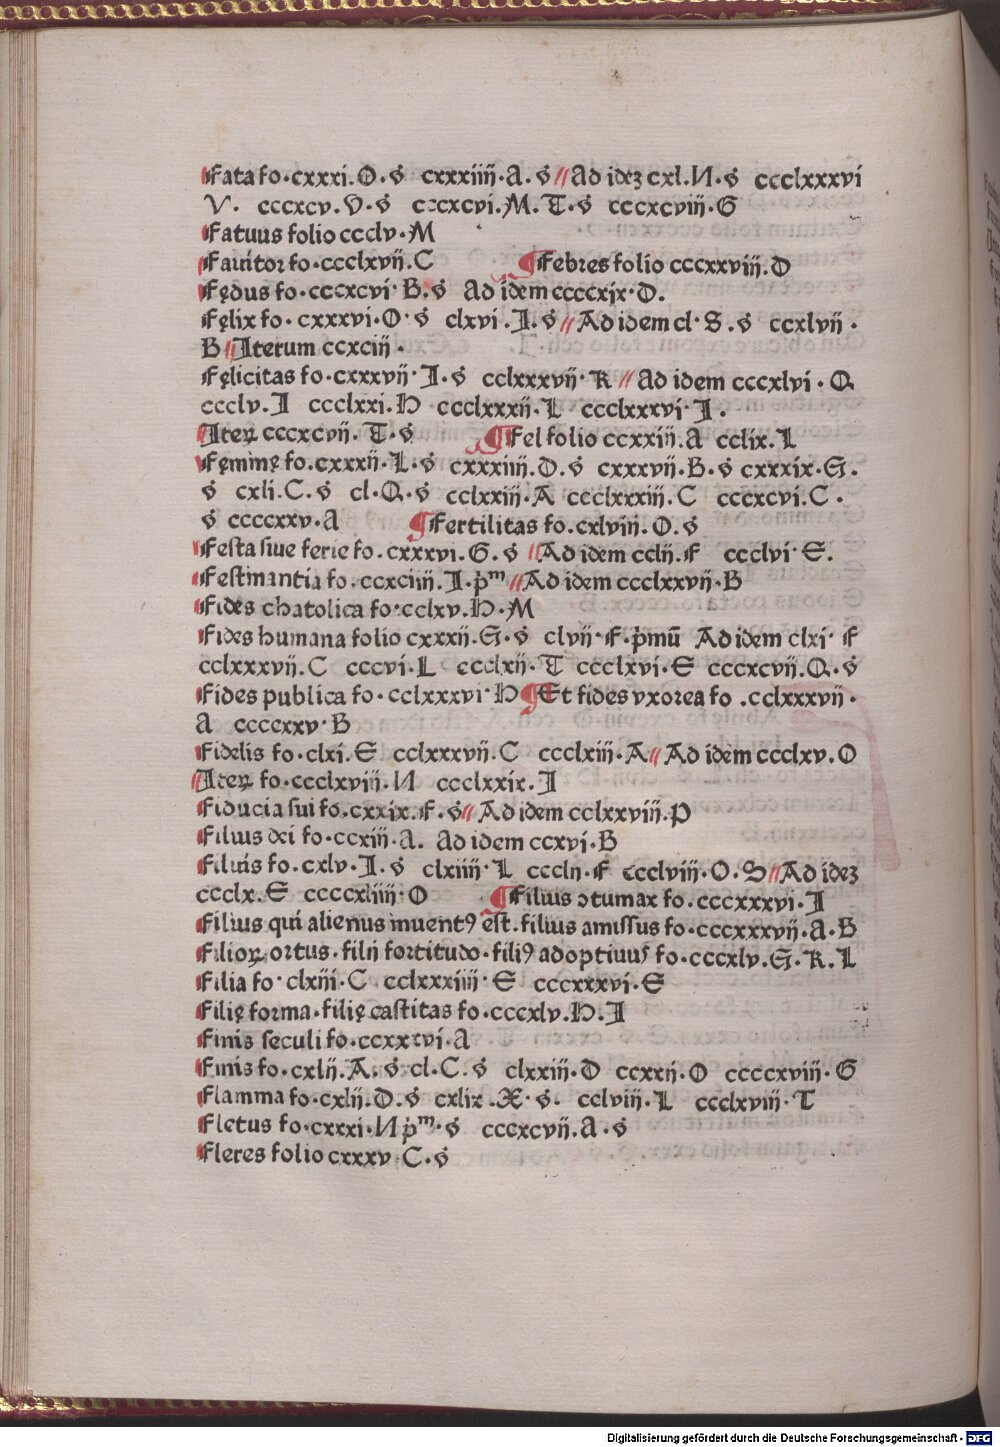 Fata fo·cxxxi.O·s̉ cxxxiiij·A·s̉ // Ad idez cxl.N·s̉ ccclxxxvi
V· cccxcv.V·s̉ cccxcvi.M.T·s̉ cccxcviij·G
Fatuus folio ccclv·M
Fauitor fo·ccclxvij.C ¶ Febres folio cccxxviij.D
Fędus fo·cccxcvi·B.s̉ Ad idem ccccxix·D.
Fęlix fo·cxxxvi·O·s̉ clxvi.I.s̉ // Ad idem cl·S.s̉ ccxlvij·
B // Iterum ccxciij·
Fęlicitas fo·cxxxvij·I·s̉ cclxxxvij·K // Ad idem cccxlvi·Q
cccclv.I ccccclxxi.H ccclxxxij·L ccclxxxvi·I·
Iteꝝ cccxcvij.T·s̉ ¶ Fel folio ccxxiij.A cclix.L
Fęminę fo.cxxxij·L·s̉ cxxxiiij.D.s̉ cxxxvij·B·s̉ cxxxix·G.
s̉ cxli.C.s̉ cl·Q·s̉ cclxxiij·A ccclxxxiij.C cccxcvi.C·
s̉ ccccxxv·A ¶ Fertilitas fo.cxlviij.O.s̉
Festa siue ferie fo.cxxxvi.G.s̉ // Ad idem cclij.F ccclvi·E.
Festinantia fo.ccxciiij.I·ṗᵐ // Ad idem ccclxxvij·B
Fides chatolica fo·cclxv.H·M
Fides humana folio cxxxij.G·s̉ clvij·F·ṗmū Ad idem clxi·F
cclxxxvij.C cccvi·L ccclxij·T ccclxvi·E cccxcvij.Q.s̉
Fides publica fo·cclxxxvi·H ¶ Et fides vxorea fo.cclxxxvij·
A ccccxxv·B
Fidelis fo·clxi.E cclxxxvij.C ccclxiij·A // Ad idem ccclxv.O
// Iteꝝ fo·ccclxviij.N ccclxxix.I
Fiducia sui fo.cxxix.F.s̉ // Ad idem cclxxviij.P
Filius dei fo·ccxiij·A. Ad idem ccxvi·B
Filius fo.cxlv.I.s̉ clxiiij·L ccclij·F ccclviij.O.S // Ad idez
ccclx.E ccccxliiij·O ¶ Filius ɔtumax fo.cccxxxvi.I
Filius qui alienus inuentꝰ est.filius amissus fo·cccxxxvij.A·B
Filioꝝ ortus·filij fortitudo·filiꝰ adoptiuus fo·cccxlv.G·K.L
Filia fo·clxiji·C cclxxxiiij·E cccxxxvi·E
Filię forma·filię castitas fo·cccxlv.H.I
Finis seculi fo.ccxxxvi·A
Finis fo·cxlij.A.s̉ cl.C.s̉ clxxiij·D ccxxij·O ccccxviij·G
Flamma fo·cxlij.D.s̉ cxlix.X·s̉· cclviij.L ccclxviij·T
Fletus fo·cxxxi·N ṗᵐ·s̉ cccxcvij.A·s̉
Fleres folio cxxxv·C·s̉
Digitalisierung gefördert durch die Deutsche Forschungsgemeinschaft - DFG